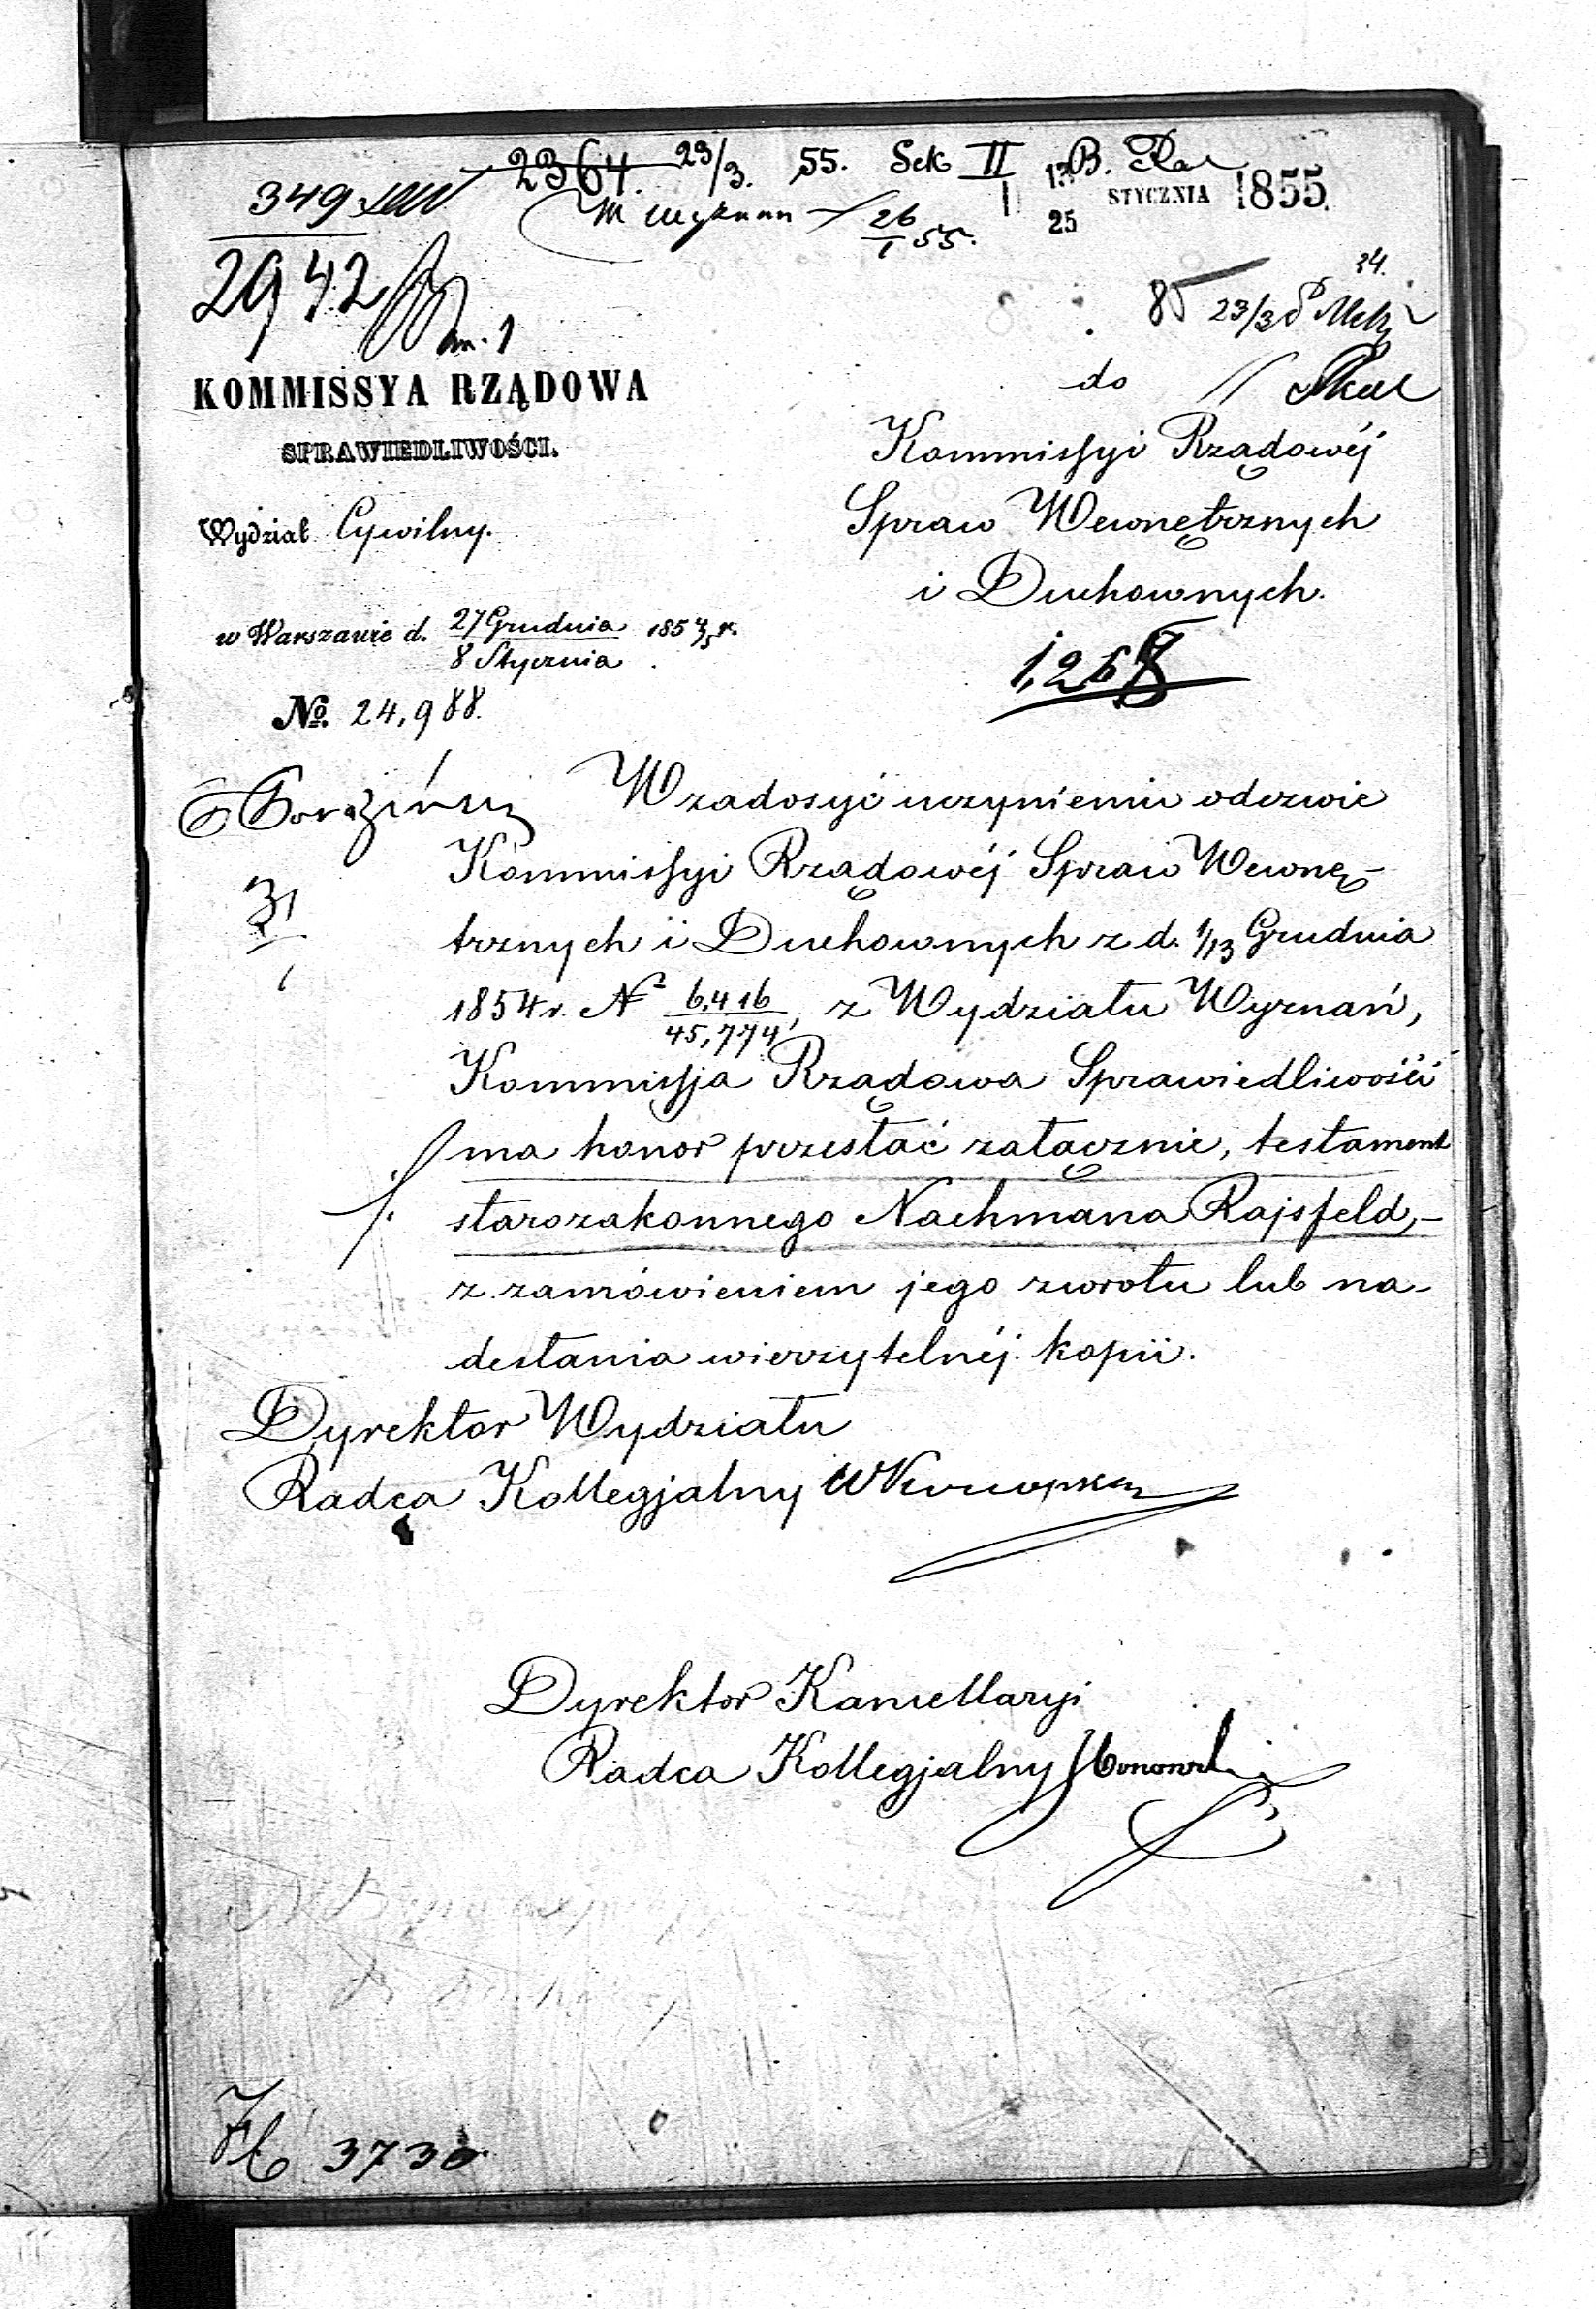 2364. 23/3. 55. Sek II B. Ra
349
13 STYCZNIA 1855.
25
26/1 55.
2942
34.
85 23/3
KOMMISSYA RZĄDOWA
SPRAWIEDLIWOŚCI.
do
Kommissyi Rządowéj
Spraw Wewnętrznych
i Duchownych.
Wydział Cywilny.
w Warszawie d. 27 Grudnia / 8 Stycznia 1854/5 r.
1,268
No. 24,988.
W zadosyć uczynieniu odezwie
Kommissyi Rządowéj Spraw Wewnę-
trznych i Duchownych z d. 1/13 Grudnia
31
1
1854 r. No 6,416/45,774, z Wydziału Wyznań,
Kommissja Rządowa Sprawiedliwości
ma honor przesłać załącznie, testament
1. starozakonnego Nachmana Rajsfeld,-
z zamówieniem jego zwrotu lub na-
desłania wierzytelnéj kopii.
Dyrektor Wydziału
Radca Kollegjalny
Dyrektor Kancellaryi
Radca Kollegjalny
3730